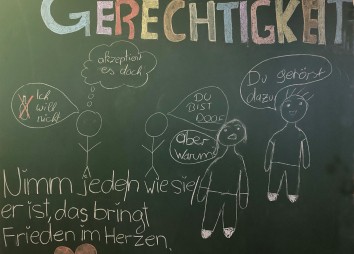 GERECHTIGKEIT
akzeptiert
es doch
Ich
will
nicht
DU
BIST
DOOF
Aber
Warum
Du gehörst
dazu
Nimm jeden wie sie/
er ist, das bringt
Frieden im Herzen.